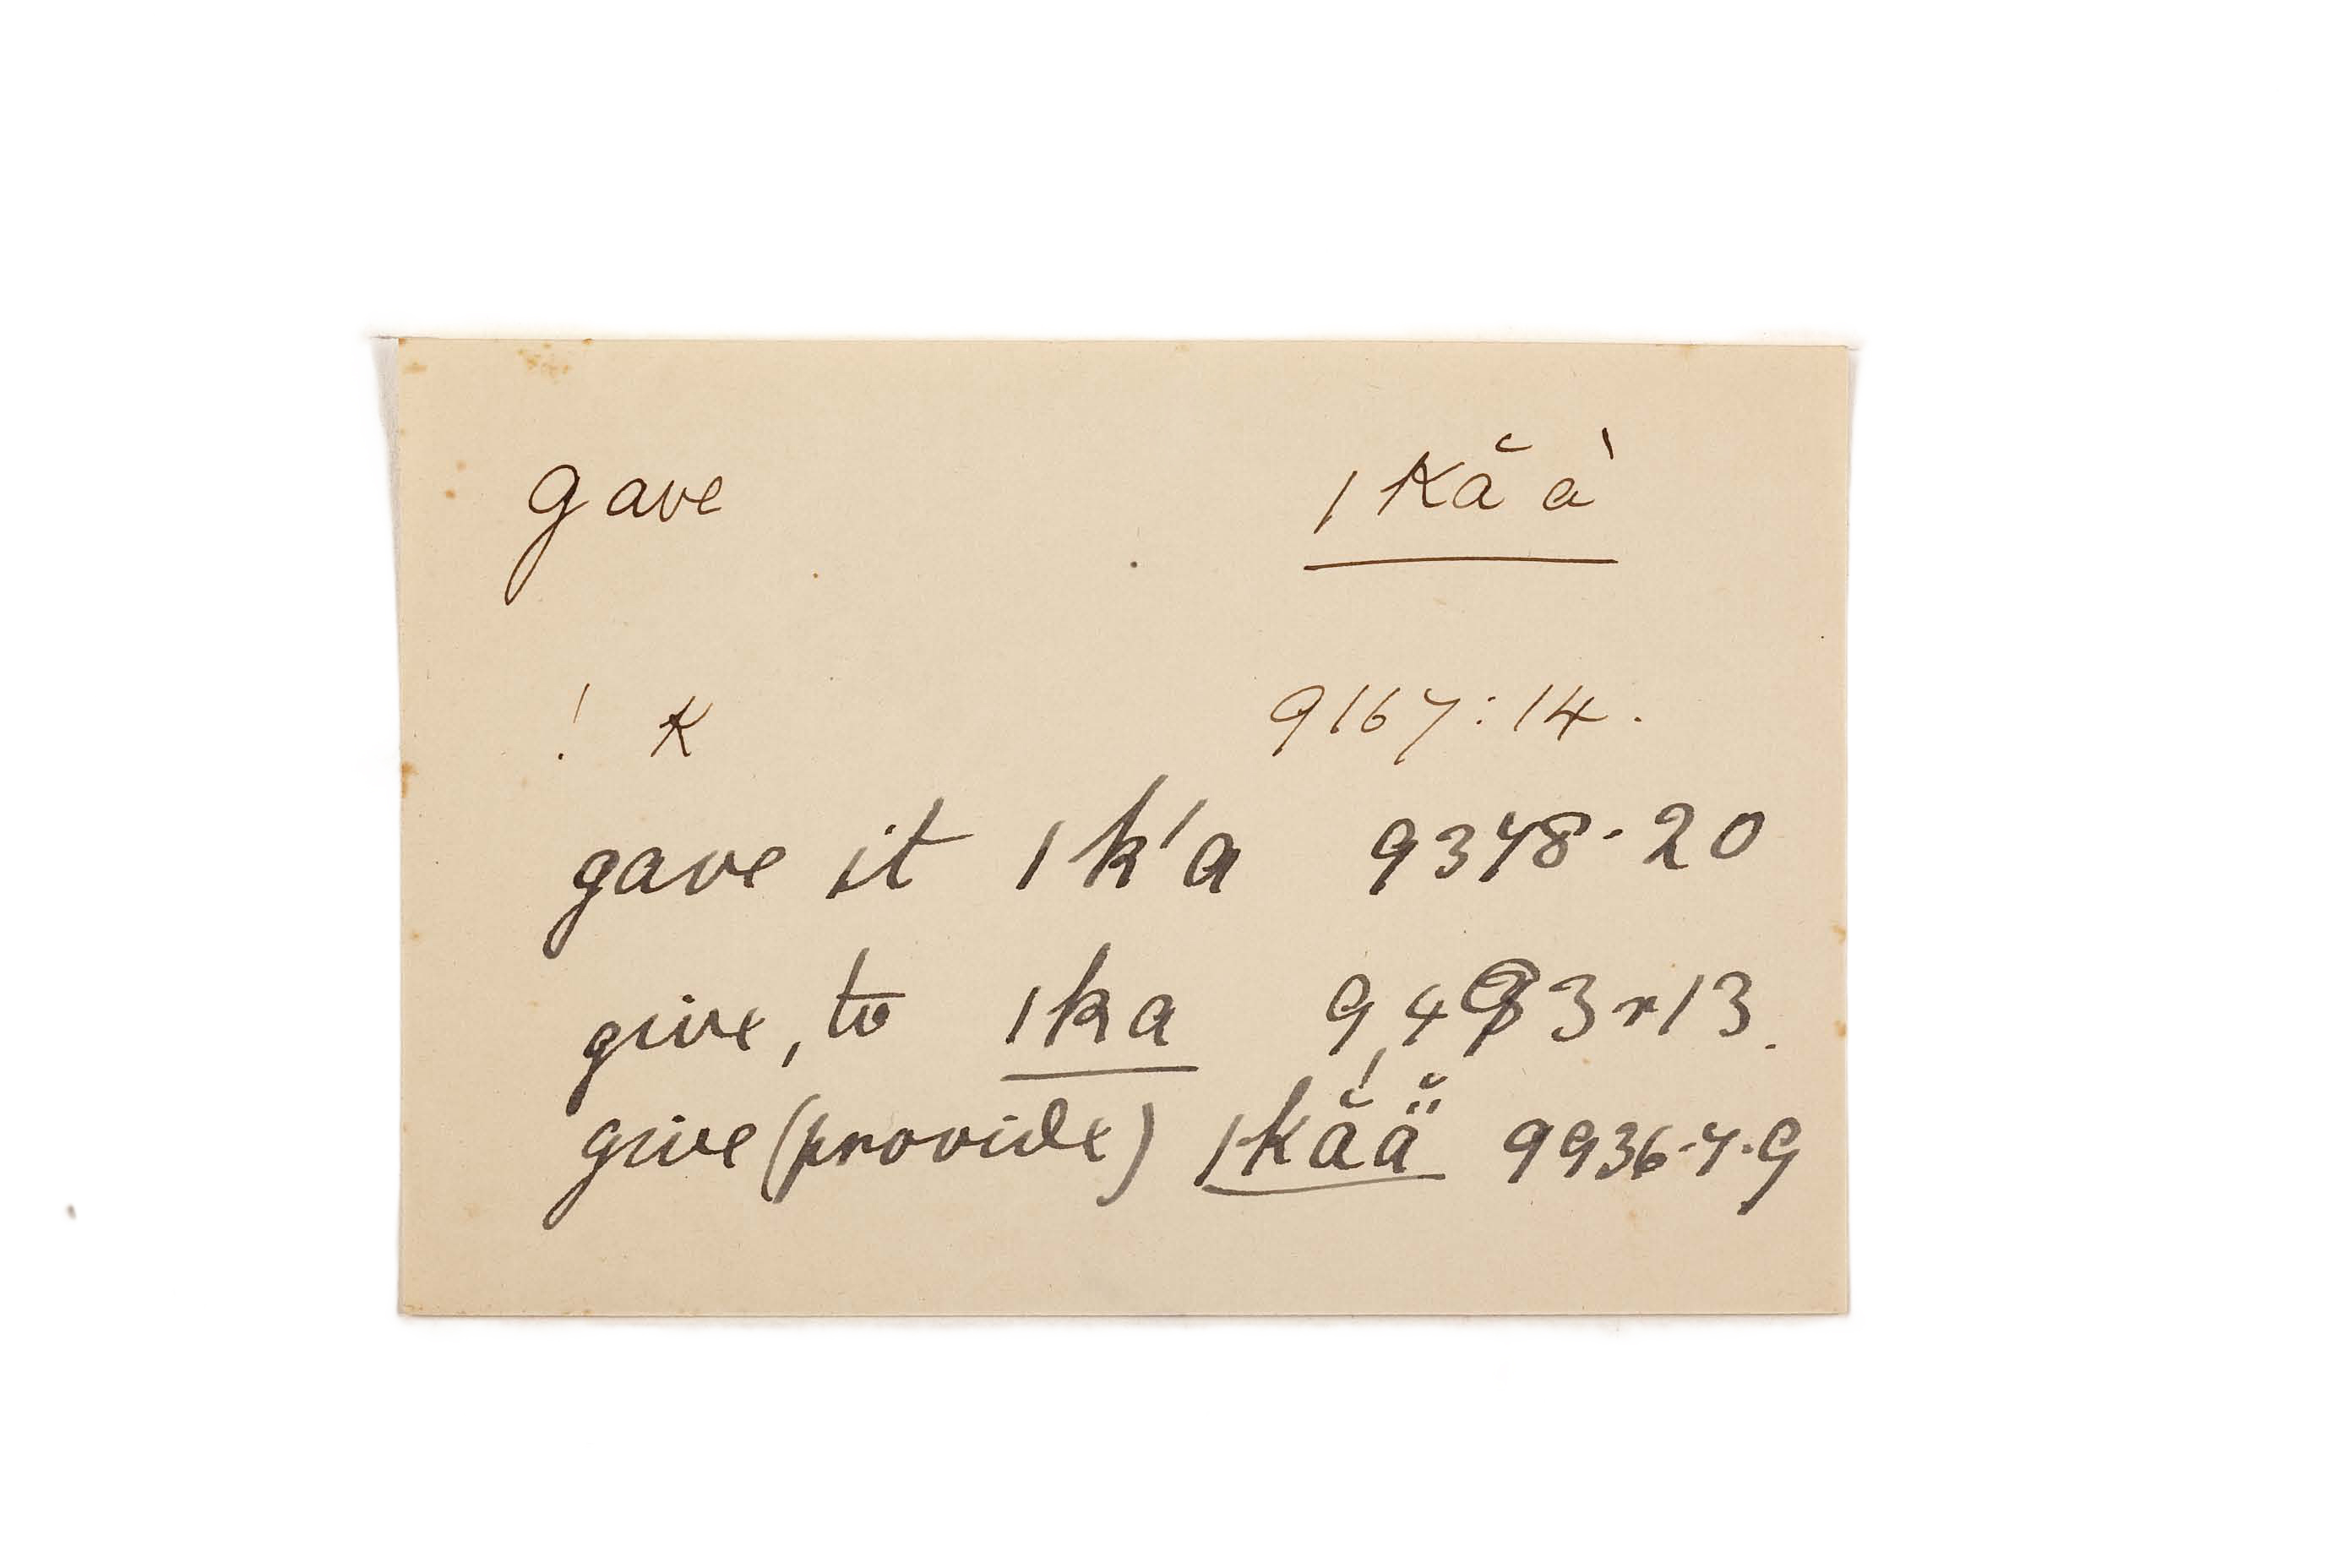 gave ǀkă à
! K 9167:14.
gave it ǀk'a 9378-20
give, to ǀka 9483r13.
give (provide) ǀkắä̆ 9936-7-9